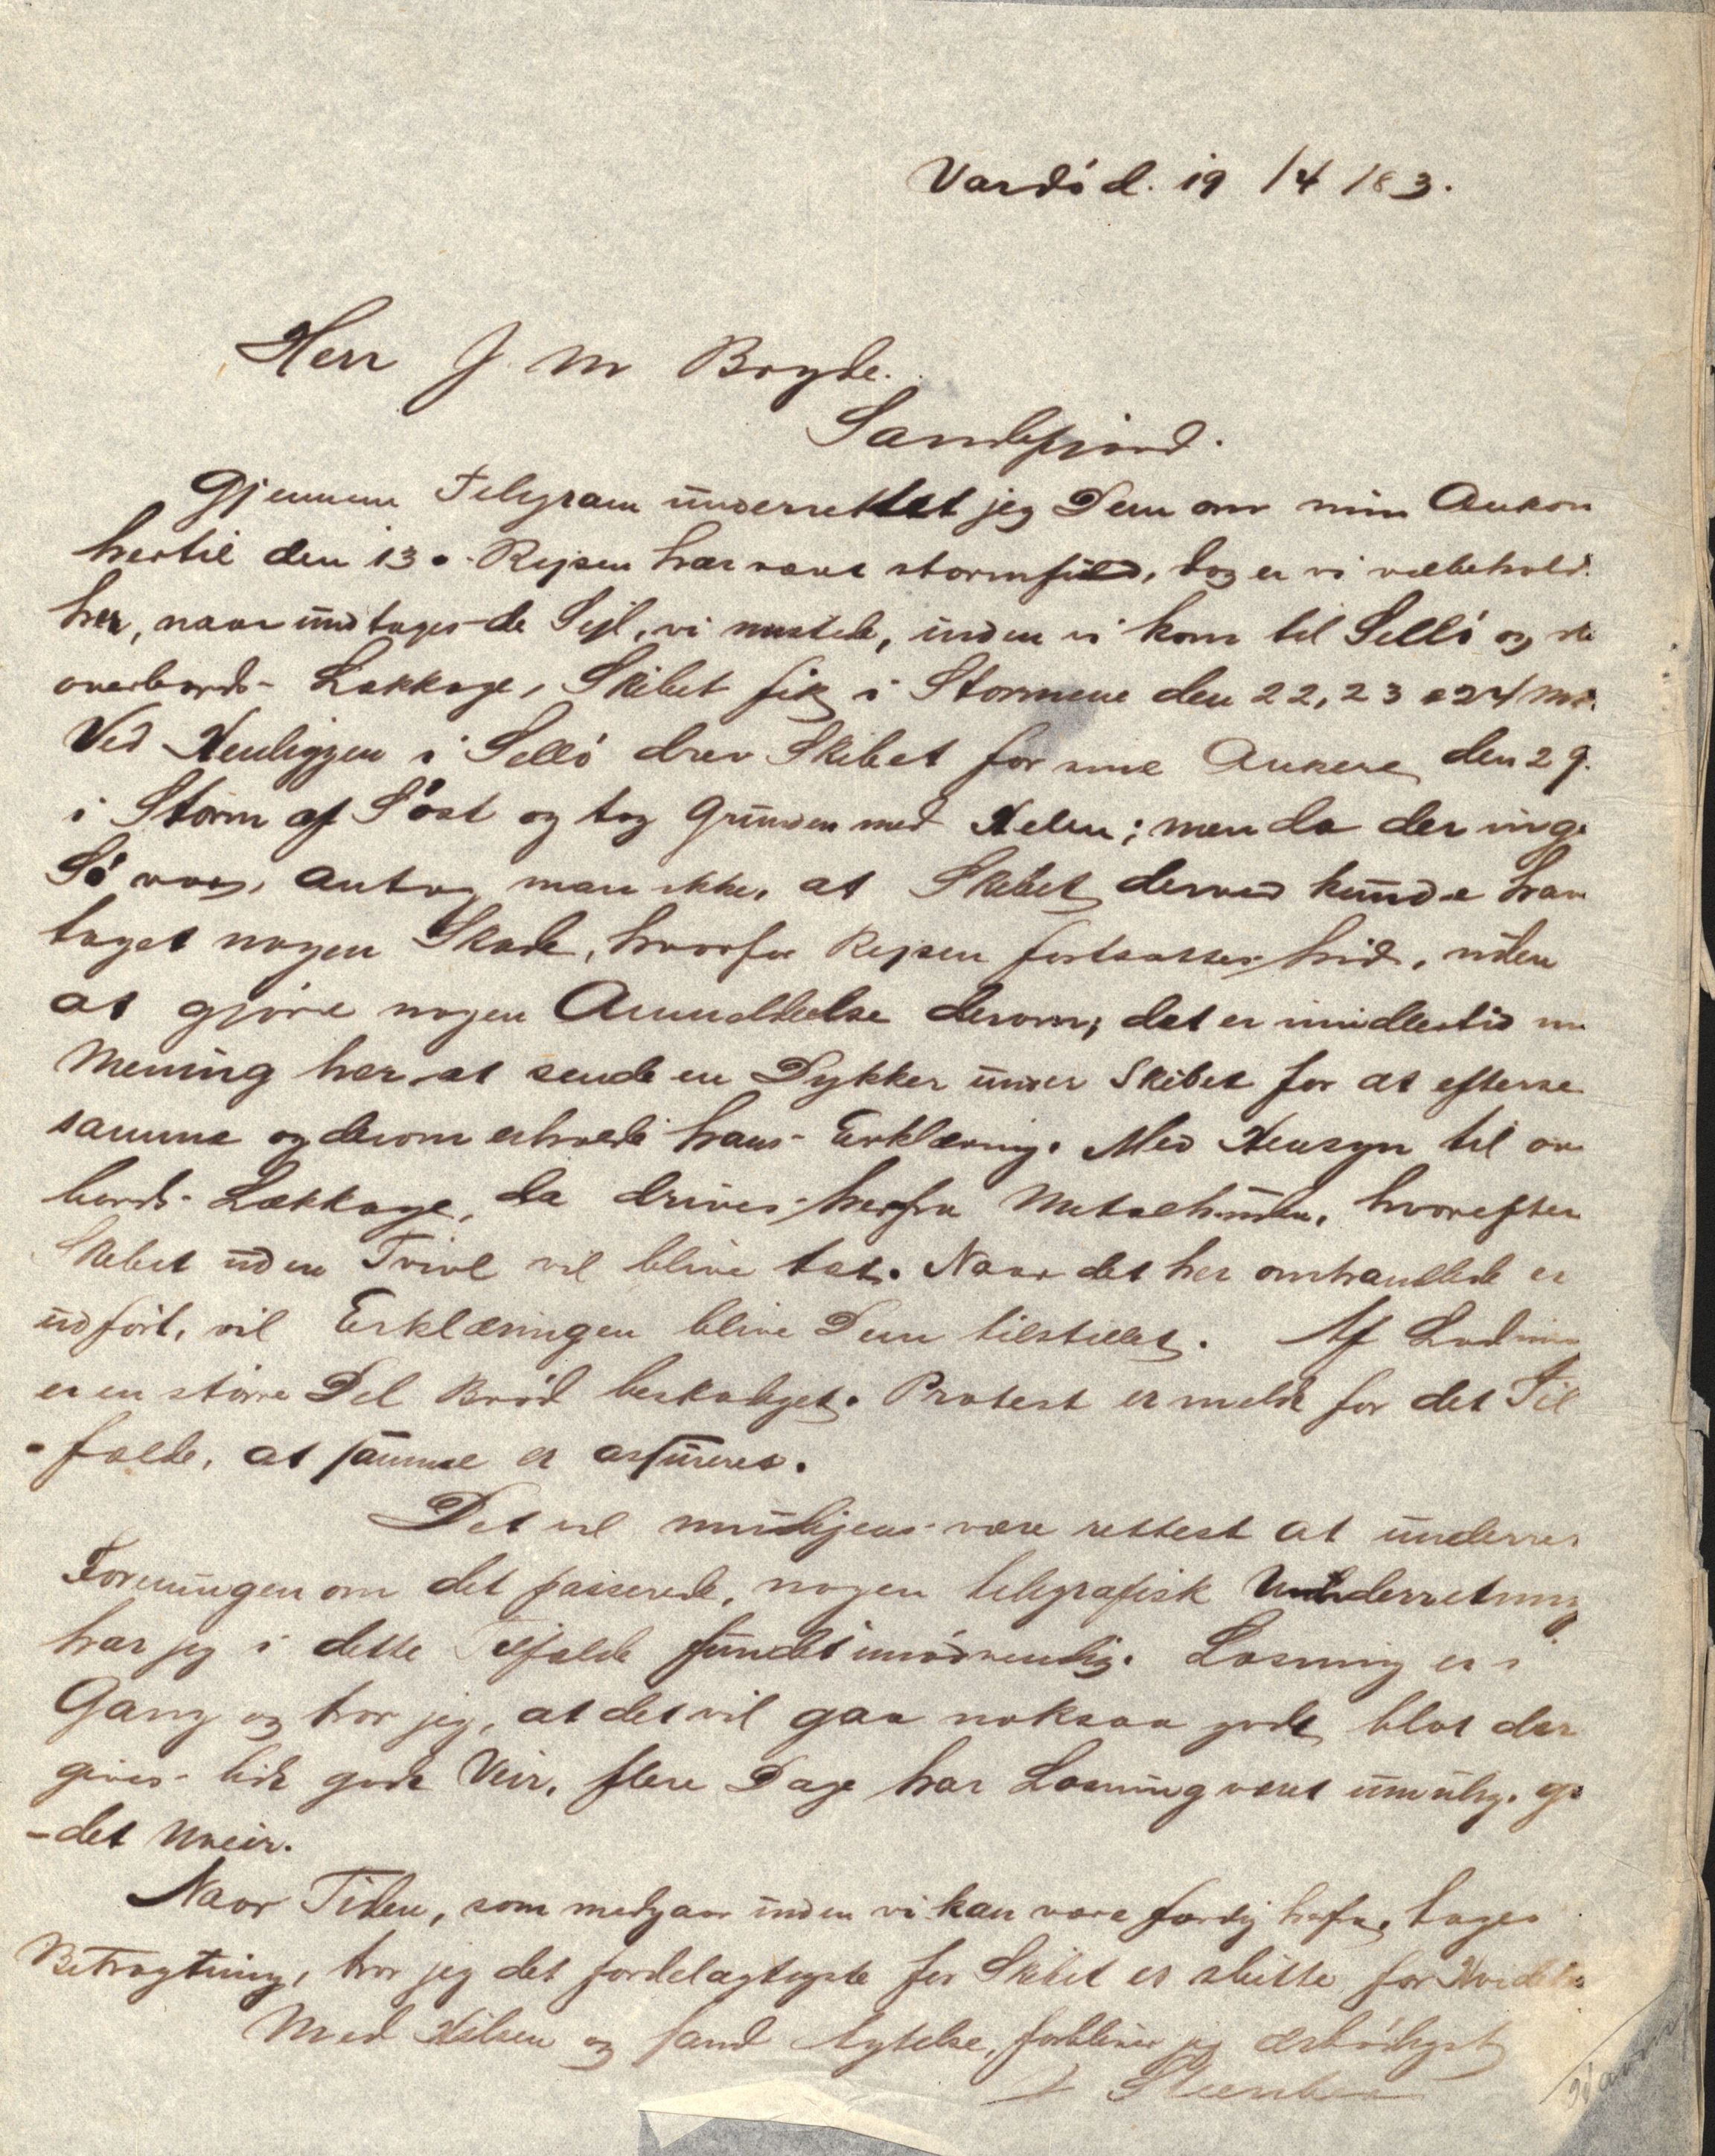 Vardö d. 19/4/83.
Herr J. M Bryde.
Sandefjord.
Gjennem Telegram underrettet jeg Dem om min Ankon
hertil den 13. Rejsen har været stormfuld, dog er vi velbehold.
her, naar undtages de Sejl, vi mistede, inden vi kom til Sellö og
overbords Lækkage, Skibet fik i Stormene den 22, 23 & 24/
Ved Henliggen i Sellö drev Skibet for sine Ankere den 29.
i Storm af Söost og tog Grunden med Hælen; men da der inge
Sö var, antog man ikke, at Skibet derved kunde hav
taget nogen Skade, hvorfor Rejsen fortsattes hid, uden
at gjöre nogen Anmeldelse derom; det er imidlertid
Mening her at sende en Dykker under Skibet for at efterse
samme og derom erhverve hans Erklæring. Med Hensyn til ov
bords Lækkage, da drives herfra hvorefter
Skibet uden Tvivl vil blive tæt. Naar det her omhandlede er
udfört, vil Erklæringen blive Dem tilstillet. Af Ladning
er en större Del Bröd beskadiget. Protest er meldt for det Til
-fælde, at samme er assureret.
Det vil muligens være rettest at underret
Foreningen om det passerede, nogen telegrafisk Underretning
har jeg i dette Tilfælde fundet unödvendig. Losning er i
Gang og tror jeg, at det vil gaa noksaa godt, blot der
gives lidt godt Veir, flere Dage har Losning været umulig. g
-det Uveir.
Naar Tiden, som medgaar inden vi kan være færdig herfra, tages
Betragtning, tror jeg det fordelagtigste for Skibet er slutte for
Med Hilsen og sand Agtelse, forbliver jeg ærbödigst